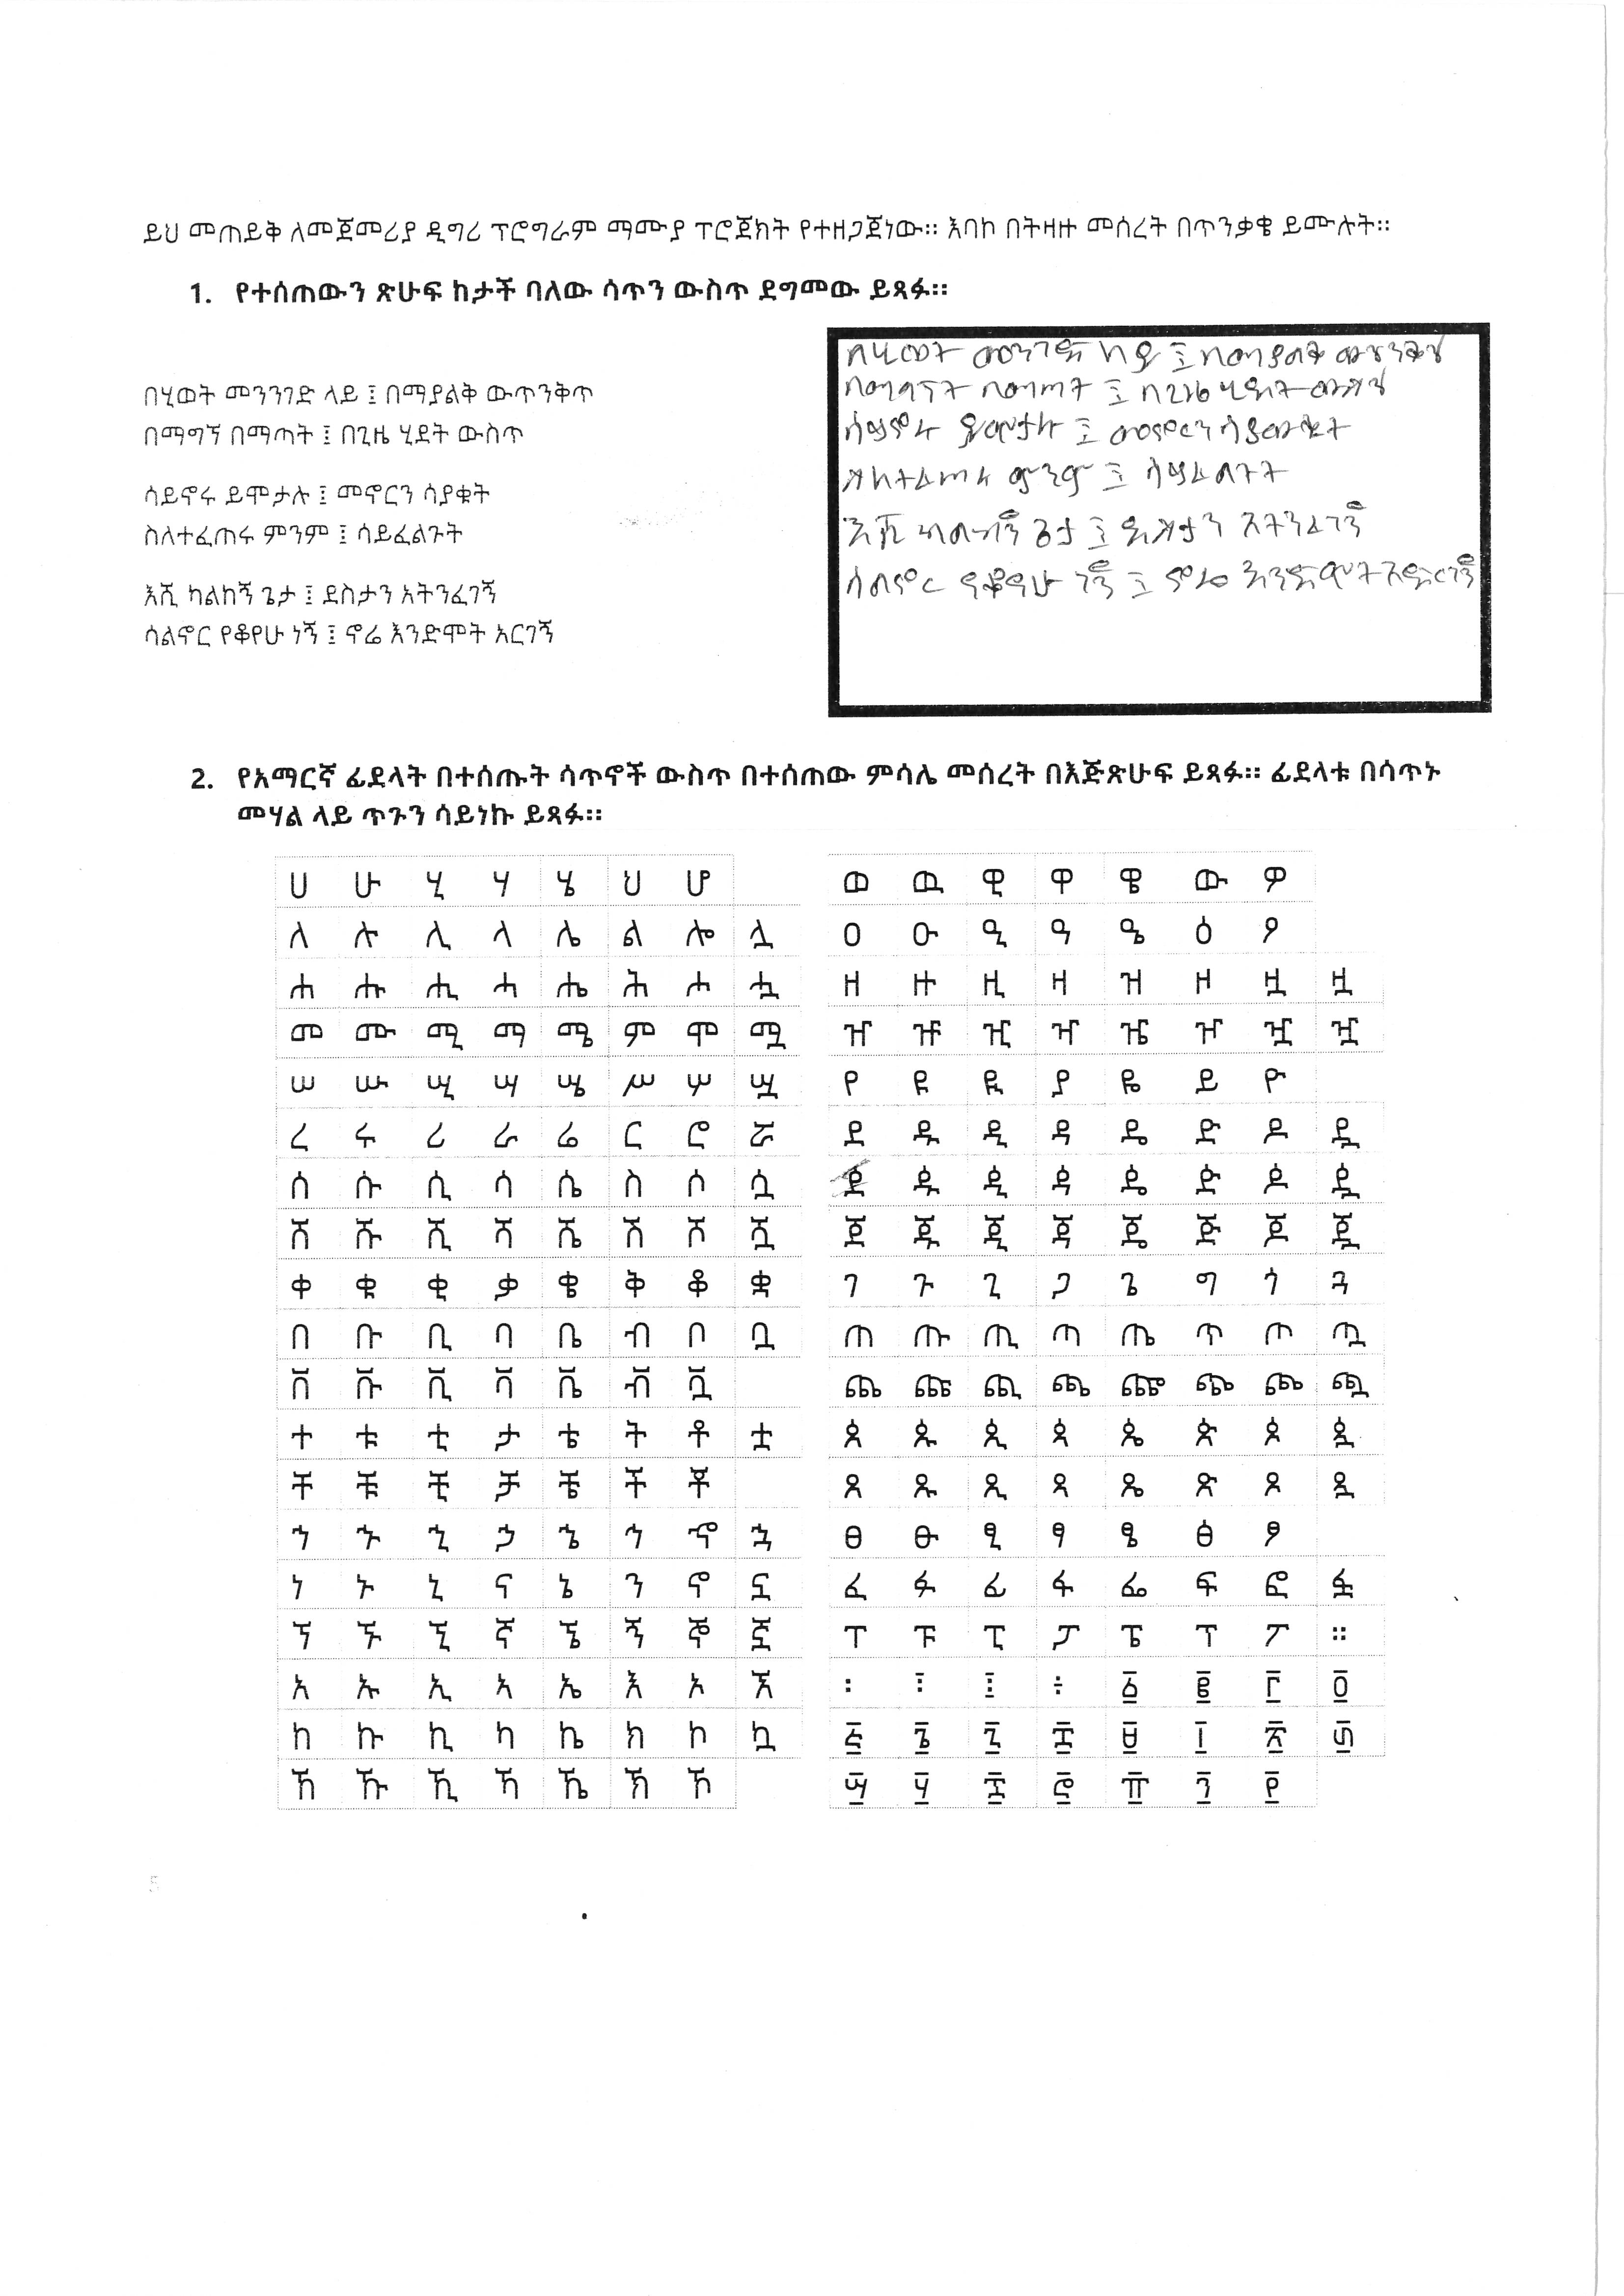 ይህ መጠይቅ ለመጀመሪያ ዲግሪ ፕሮግራም ማሙያ ፕሮጀክት የተዘጋጀነው። እባኮ በትዛዙ መሰረት በጥንቃቄ ይሙሉት።
1. የተሰጠውን ጽሁፍ ከታች ባለው ሳጥን ውስጥ ደግመው ይጻፉ።
በሂወት መንንገድ ላይ ፤ በማያልቅ ውጥንቅጥ
በማግኘ በማጣት ፤ በጊዜ ሂደት ውስጥ
ሳይኖሩ ይሞታሉ ፤ መኖርን ሳያቁት
ስለተፈጠሩ ምንም ፤ ሳይፈልጉት
እሺ ካልከኝ ጌታ ፤ ደስታን አትንፈገኝ
ሳልኖር የቆየሁ ነኝ ፤ ኖሬ እንድሞት አርገኝ
በሂወት መንገድ ላይ ፤ በማያልቅ ውጥንቅጥ
በማግኘት በማጣት ፤ በጊዜ ሂደት ውስጥ
ሳይኖሩ ይሞታሉ ፤ መኖርን ሳያውቁት
ስለተፈጠሩ ምንም ፤ ሳይፈልጉት
እሺ ካልከኝ ጌታ ፤ ደስታን አትንፈገኝ
ሳልኖር የቆየሁ ነኝ ፤ ኖሬ እንድሞት አድርገኝ
2. የአማርኛ ፊደላት በተሰጡት ሳጥኖች ውስጥ በተሰጠው ምሳሌ መሰረት በእጅጽሁፍ ይጻፉ። ፊደላቱ በሳጥኑ
መሃል ላይ ጥጉን ሳይነኩ ይጻፉ።
ሀ ሁ ሂ ሃ ሄ ህ ሆ
ለ ሉ ሊ ላ ሌ ል ሎ ሏ
ሐ ሑ ሒ ሓ ሔ ሕ ሖ ሗ
መ ሙ ሚ ማ ሜ ም ሞ ሟ
ሠ ሡ ሢ ሣ ሤ ሥ ሦ ሧ
ረ ሩ ሪ ራ ሬ ር ሮ ሯ
ሰ ሱ ሲ ሳ ሴ ስ ሶ ሷ
ሸ ሹ ሺ ሻ ሼ ሽ ሾ ሿ
ቀ ቁ ቂ ቃ ቄ ቅ ቆ ቋ
በ ቡ ቢ ባ ቤ ብ ቦ ቧ
ቨ ቩ ቪ ቫ ቬ ቭ ቯ
ተ ቱ ቲ ታ ቴ ት ቶ ቷ
ቸ ቹ ቺ ቻ ቼ ች ቾ
ኀ ኁ ኂ ኃ ኄ ኅ ኆ ኋ
ነ ኑ ኒ ና ኔ ን ኖ ኗ
ኘ ኙ ኚ ኛ ኜ ኝ ኞ ኟ
አ ኡ ኢ ኣ ኤ እ ኦ ኧ
ከ ኩ ኪ ካ ኬ ክ ኮ ኳ
ኸ ኹ ኺ ኻ ኼ ኽ ኾ
ወ ዉ ዊ ዋ ዌ ው ዎ
ዐ ዑ ዒ ዓ ዔ ዕ ዖ
ዘ ዙ ዚ ዛ ዝ ዞ ዟ ዟ
ዠ ዡ ዢ ዣ ዤ ዦ ዧ ዧ
የ ዩ ዪ ያ ዬ ይ ዮ
ደ ዱ ዲ ዳ ዴ ድ ዶ ዷ
ዸ ዹ ዺ ዻ ዼ ዽ ዾ ዿ
ጀ ጁ ጂ ጃ ጄ ጅ ጆ ጇ
ገ ጉ ጊ ጋ ጌ ግ ጎ ጓ
ጠ ጡ ጢ ጣ ጤ ጥ ጦ ጧ
ጨ ጩ ጪ ጫ ጬ ጭ ጮ ጯ
ጰ ጱ ጲ ጳ ጴ ጵ ጶ ጷ
ጸ ጹ ጺ ጻ ጼ ጽ ጾ ጿ
ፀ ፁ ፂ ፃ ፄ ፅ ፆ
ፈ ፉ ፊ ፋ ፌ ፍ ፎ ፏ
ፐ ፑ ፒ ፓ ፔ ፕ ፖ ።
፡ ፣ ፤ ÷ ፩ ፪ ፫ ፬
፭ ፮ ፯ ፰ ፱ ፲ ፳ ፴
፵ ፶ ፷ ፸ ፹ ፺ ፻